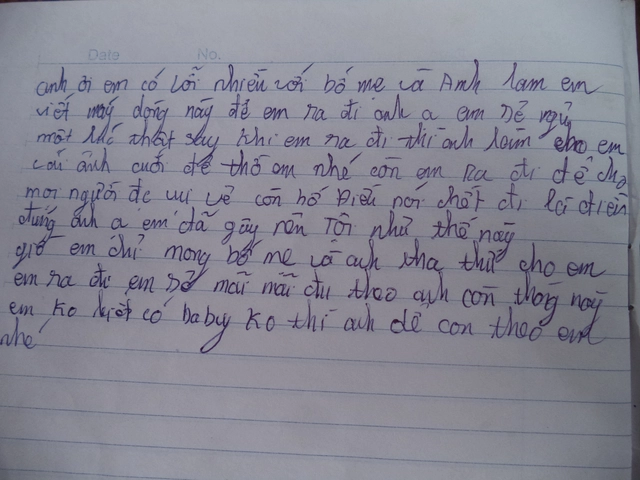 Date No.
anh ơi em có lỗi nhiều với bố mẹ và Anh lam em
viết mấy dòng này để em ra đi anh ạ em sẽ ngủ
một thật say khi em ra đi thì anh làm cho em
cái ảnh cuối để thờ em nhé còn em ra đi để cho
mọi người đc vui vẻ còn bố nói chết đi là
đúng anh ạ em đã gây nên Tội như thế này
giờ em chỉ mong bố mẹ và anh tha thứ cho em
em ra đi em sẽ mãi mãi theo anh còn tháng này
em ko biết có baby ko thì anh để con theo em
nhé